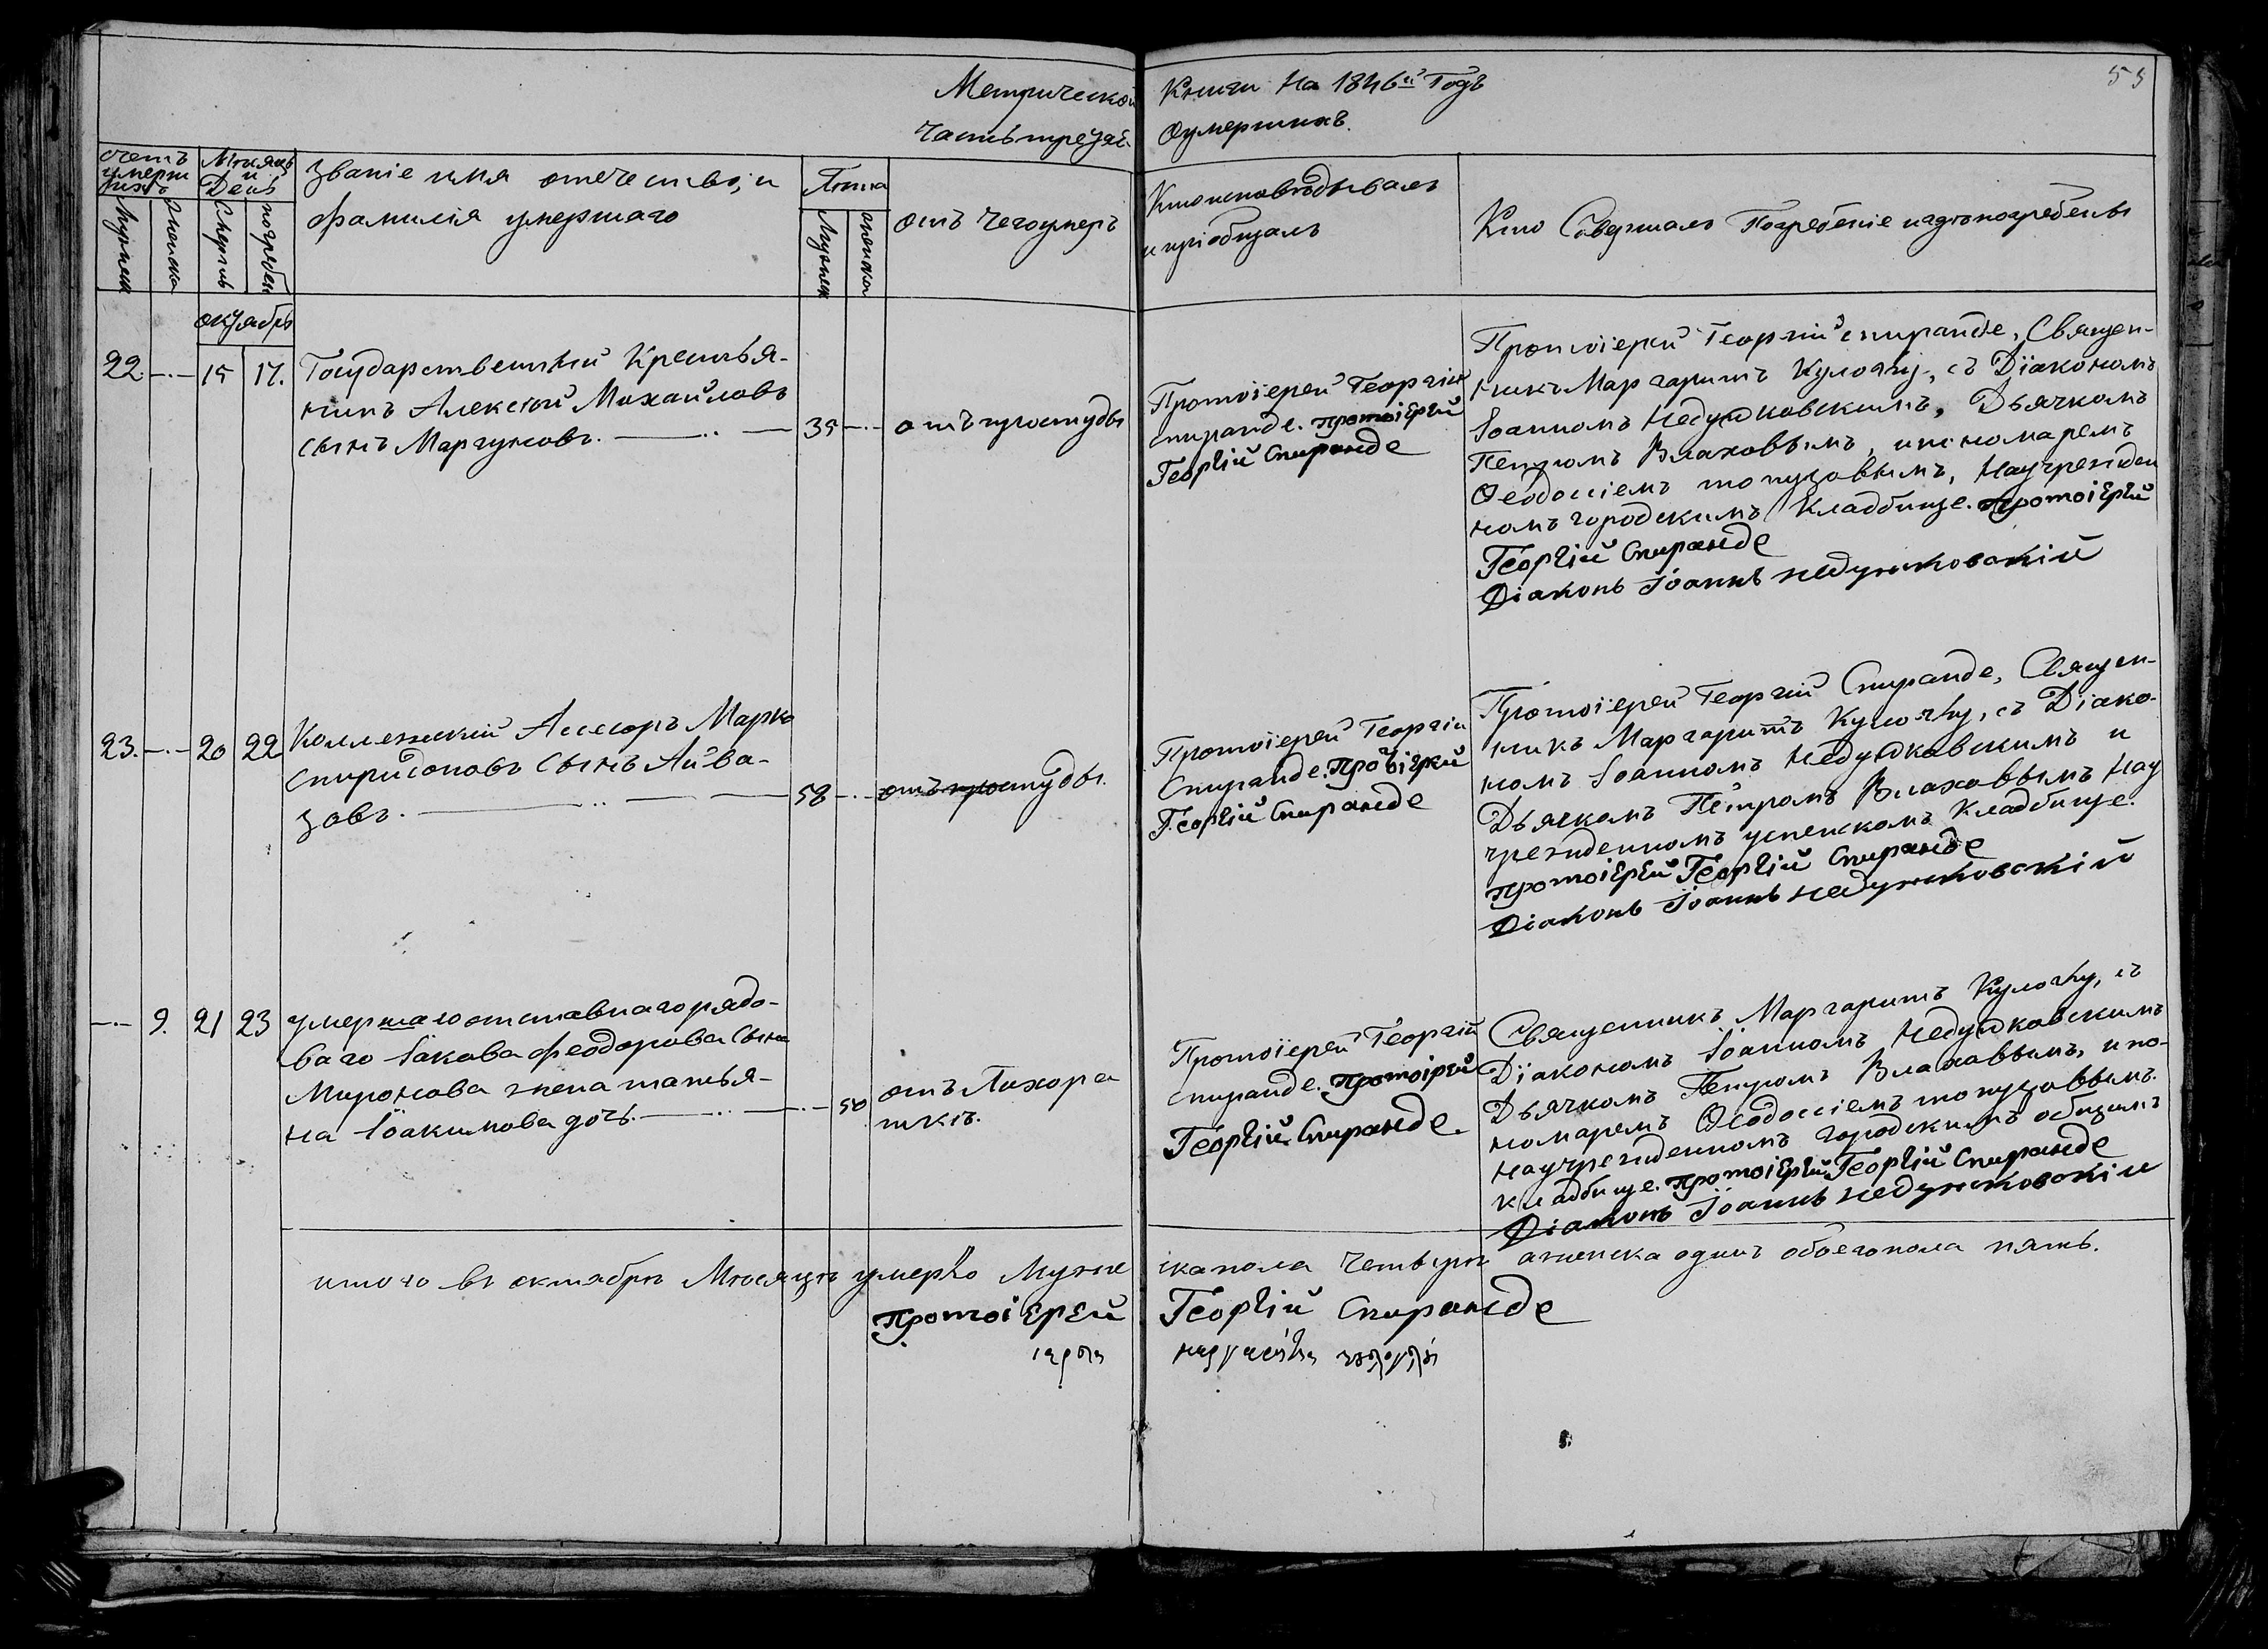 Метрической Книги На 1846й Годъ
55
Часть третья. О умершихъ.
счетъ умершихъ
Мужеска
Женска
Мѣсяцъ и День
Смерти
погребен
Званіе имя отечество, и
фамилія умершаго
Лѣта
Мужеск
женска
отъ чего умеръ
Кто исповѣдывалъ
и пріобщалъ
Кто Совершалъ Погребеніе и гдѣ погребены
октябрь
22. —.— 15 17.
Государственный Крестья-
нинъ Алексѣй Михайловъ
сынъ Маргуновъ. —..—
35 —.—
отъ простуды
Протоіерей Георгій
спиранде. протоіерей
Георгій Спиранде
Протоіерей Георгій спиранде, Священ-
никъ Маргаритъ Кулочну, съ Діакономъ
Іоанномъ Недужковскимъ, Дьячкомъ
Петромъ Влаховымъ, и пономаремъ
Ѳеодосіемъ топузовымъ, На учрежден
номъ городскимъ Кладбище. протоіерей
Георгій Спиранде
Діаконъ Іоаннъ недужковскій
23. —.— 20 22
Коллежскій Ассесоръ Марко
спиридоновъ сынъ Айва-
зовъ. —..—
58 —.—
отъ простуды.
Протоіерей Георгій
Спиранде. протоіерей
Георгій Спиранде
Протоіерей Георгій Спиранде, Священ-
никъ Маргаритъ Кулочну, съ Діако-
номъ Іоанномъ Недужковскимъ и
Дьячкомъ Петромъ Влаховымъ На у
чрежденномъ успенскомъ Кладбище.
протоіерей Георгій Спиранде
Діаконъ Іоаннъ недужковскій
—.— 9. 21 23
умершаго отставнаго рядо-
ваго Іакова феодорова сына
Миронова жена татья-
на Іоакимова дочь. —..—
—.— 50
отъ Лихора
ткѣ.
Протоіерей Георгій
спиранде. протоірей
Георгій Спиранде.
Священникъ Маргаритъ Кулочну, съ
Діакономъ Іоанномъ Недужковскимъ
Дьячкомъ Петромъ Влаховымъ, и по-
номаремъ Ѳеодосіемъ топузовымъ.
на учрежденномъ городскимъ общимъ
кладбище. протоіерей Георгій Спиранде
Діаконъ Іоаннъ недужковскій
итого въ октябрѣ Мѣсяцѣ умерло Муже ска пола четыри а женска одинъ обоего пола пять.
протоіерей Георгій Спиранде